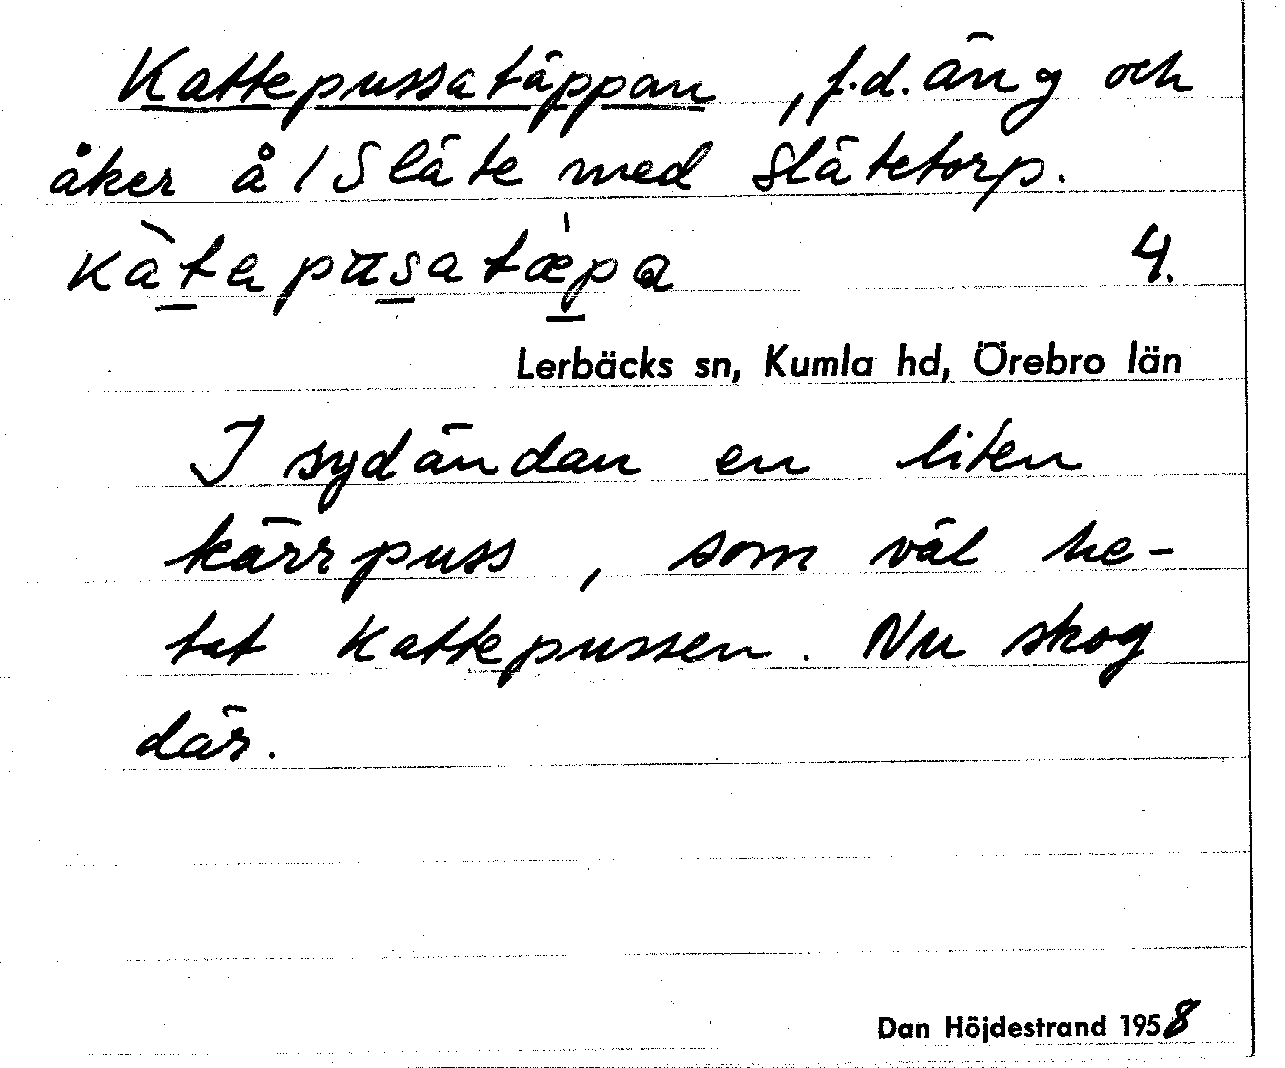 Kattepussatäppan, f.d. äng och
åker å 1 Släte med Slätetorp.
kàtepusatæpa 4.
Lerbäcks sn, Kumla hd, Örebro län
I sydändan en liten
kärrpuss, som väl he-
tat Kattepussen. Nu skog
där.
Dan Höjdestrand 1958